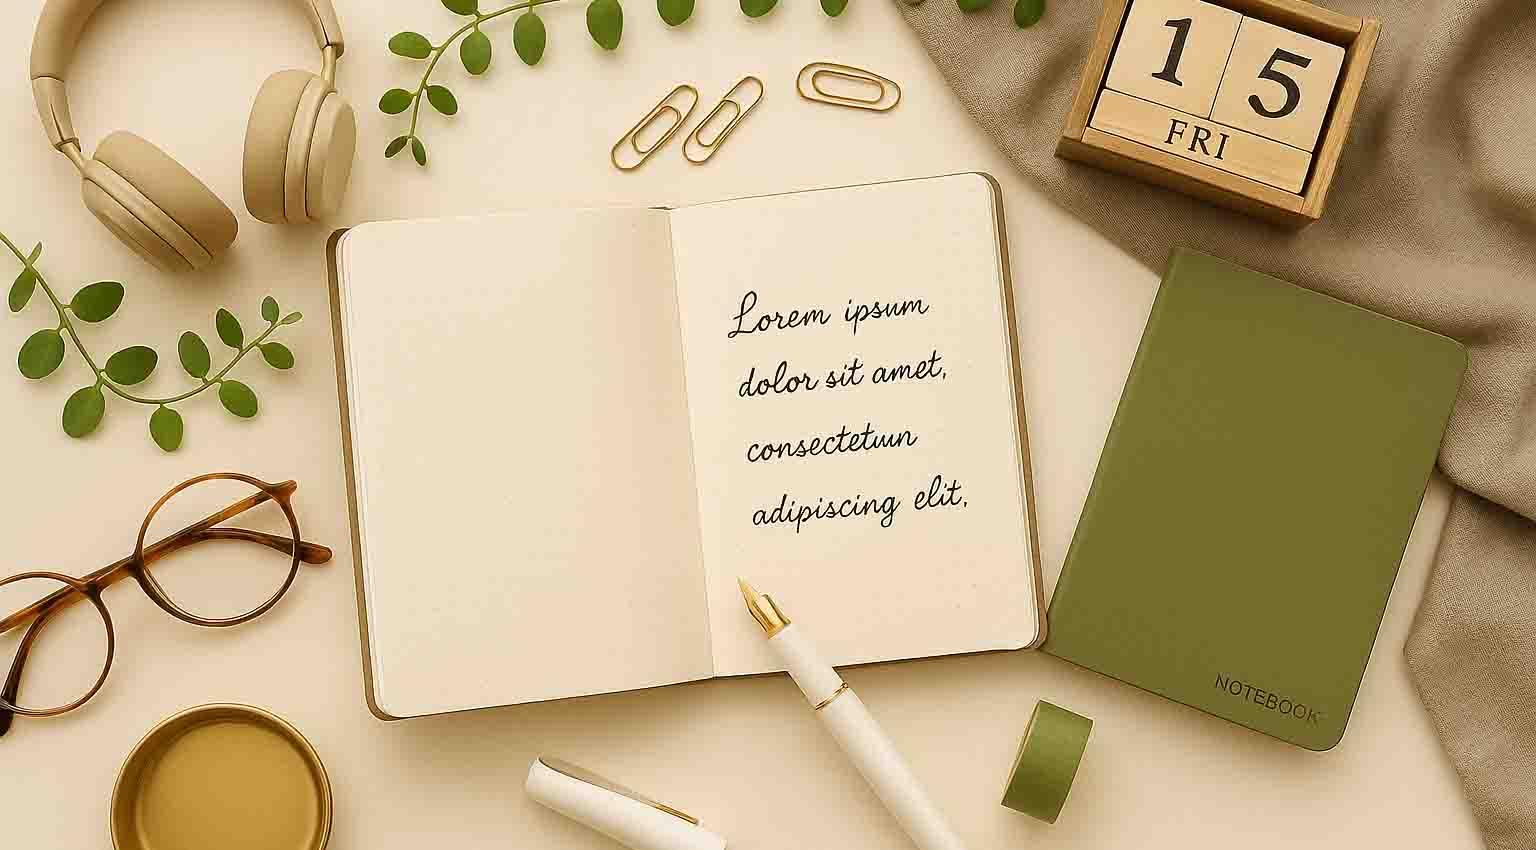 1 5
FRI
Lorem ipsum
dolor sit amet,
consectetuın
adipiscing elit,
NOTEBOOK